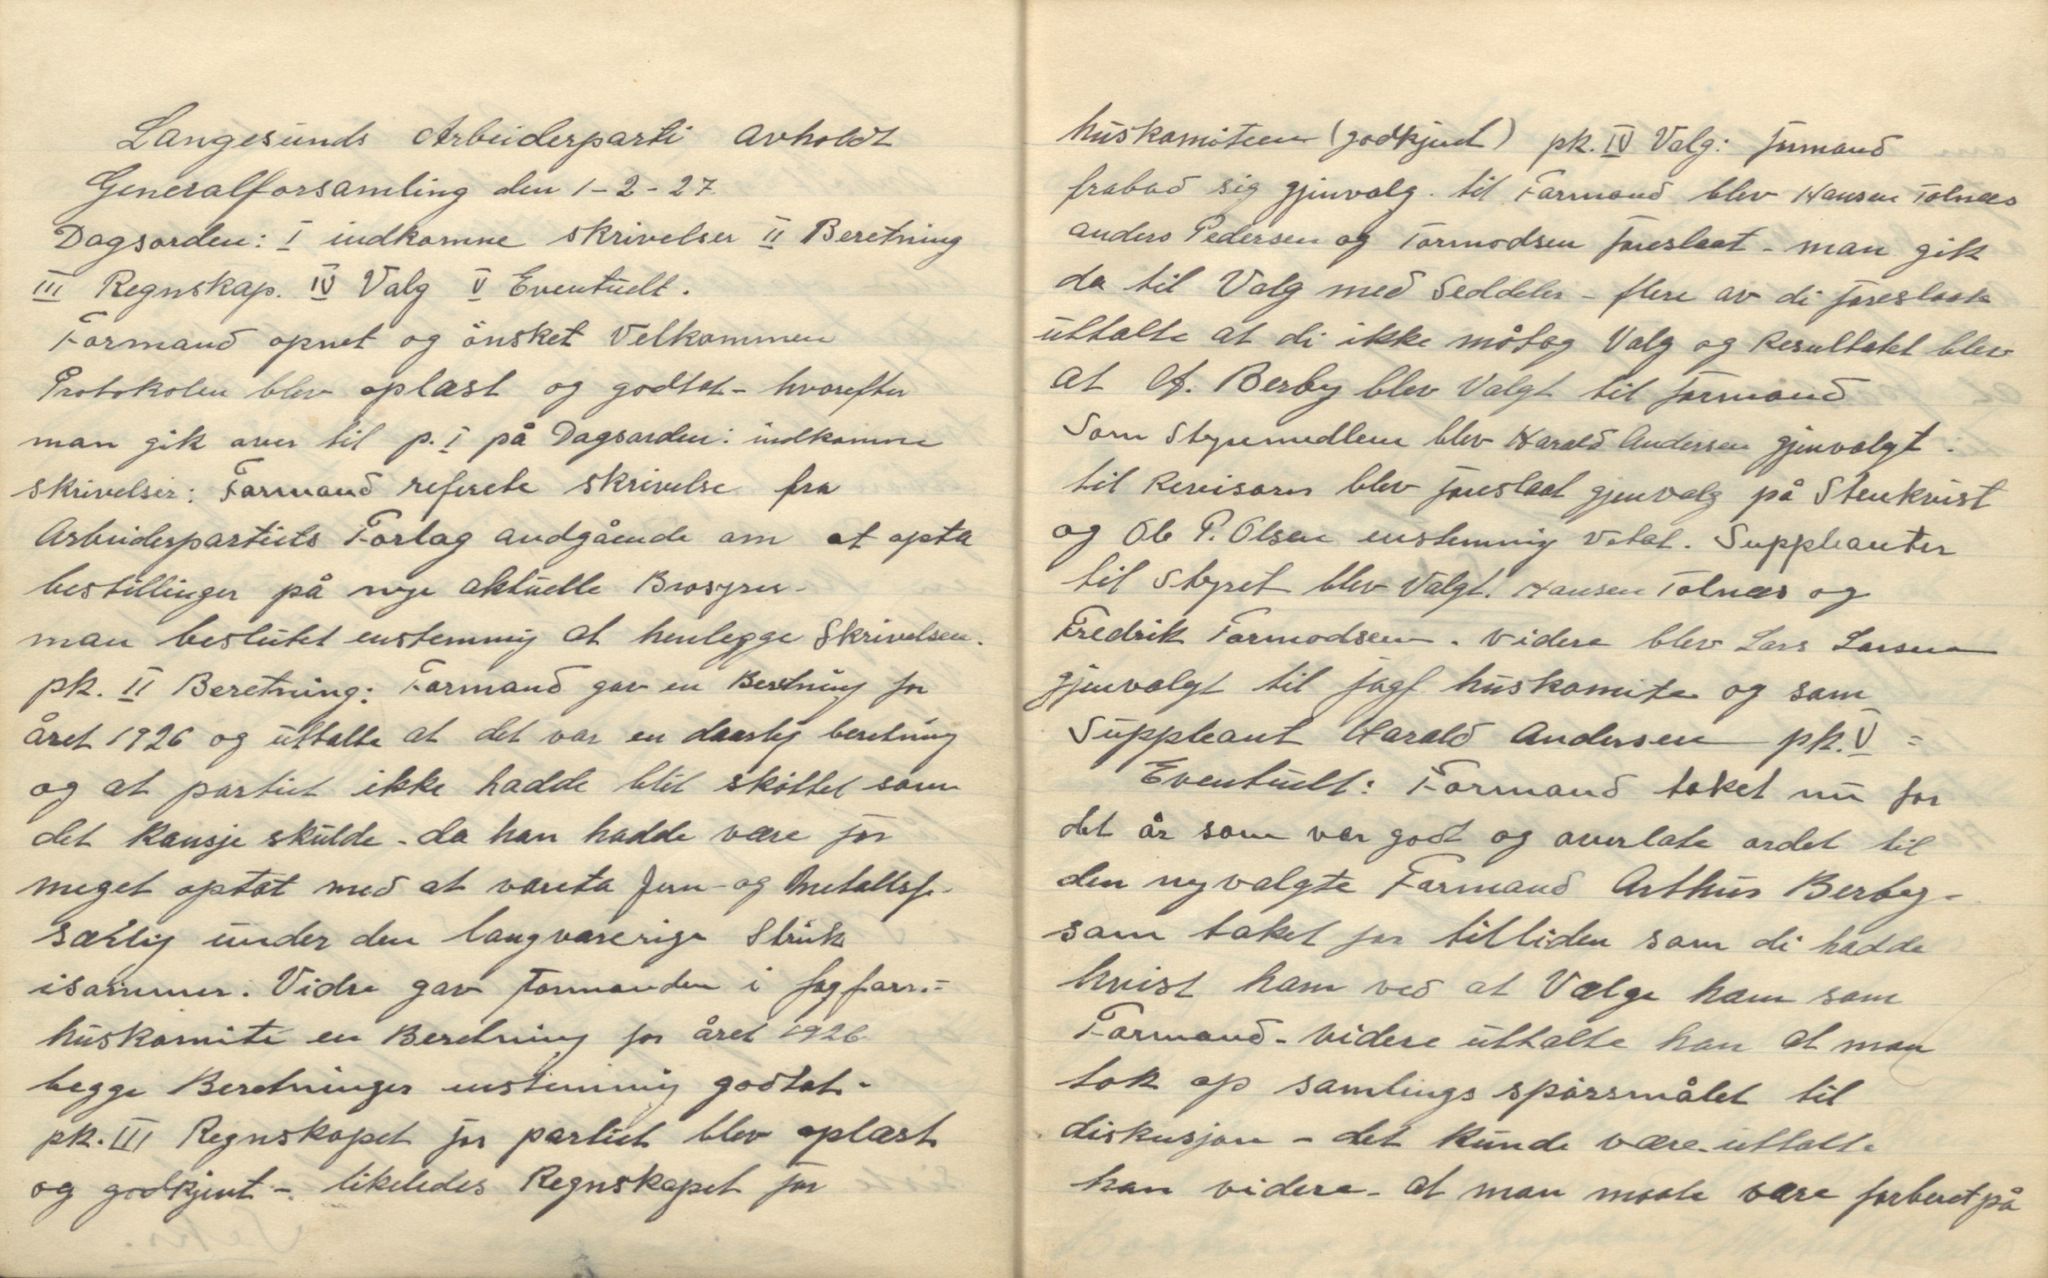 Langesunds Arbeiderparti avholdt
Generalforsamling den 1-2-27
Dagsorden: I indkomne skrivelser II Beretning
III Regnskap. IV Valg V Eventuelt.
Formand opnet og ønsket Velkommen
Protokolen blev oplæst og godtat - hvorefter
man gik over til p. I på Dagsorden: indkomne
skrivelser: Formand referete skrivelse fra
Arbeiderpartiets Forlag angående om at opta
bestillinger på nye aktuelle Brosyrer -
man beslutet enstemmig at henlegge Skrivelsen.
pk. II Beretning: Formand gav en Beretning for
året 1926 og uttalte at det var en daarlig beretning
og at partiet ikke hadde blit skøttet som
det kansje skulde - da han hadde være for
meget optat med at vareta Jern- og Metallsf.
særlig under den langvarerige Streik
isommer. Vidre gav formanden i fagforn.=
huskomite en Beretning for året 1926
begge Beretninger enstemmig godtat -
pk. III Regnskapet for partiet blev oplæst
og godkjent - likeledes Regnskapet for
huskomiteen (godkjent) pk. IV Valg: formand
frabad sig gjenvalg. til Formand blev Hansen Tolnæs
anders Pedersen og Tormodsen foreslaat - man gik
da til Valg med Seddeler - flere av di foreslaate
uttalte at di ikke måtog Valg og Resultatet blev
at A. Berby blev Valgt til formand
Som Styremedlem blev Harald Andersen gjenvalgt.
til Revisorer blev foreslaat gjenvalg på Stenkvist
og Ole P. Olsen enstemmig Vetat. Suppleanter
til Styret blev Valgt. Hansen Tolnæs og
Fredrik Tormodsen. Videre blev Lars Larsen
gjenvalgt til fagf huskomite og som
Suppleant Harald Andersen pk. V =
Eventuelt: Formand taket nu for
det år som var gaat og overlate ordet til
den nyvalgte Formand Arthur Berby -
som taket for tilliden som di hadde
hvist ham ved at Vælge ham som
Formand - videre uttalte han at man
tok op samlings spørsmålet til
diskusjon - det kunde være uttalte
han videre - at man maate være forberet på